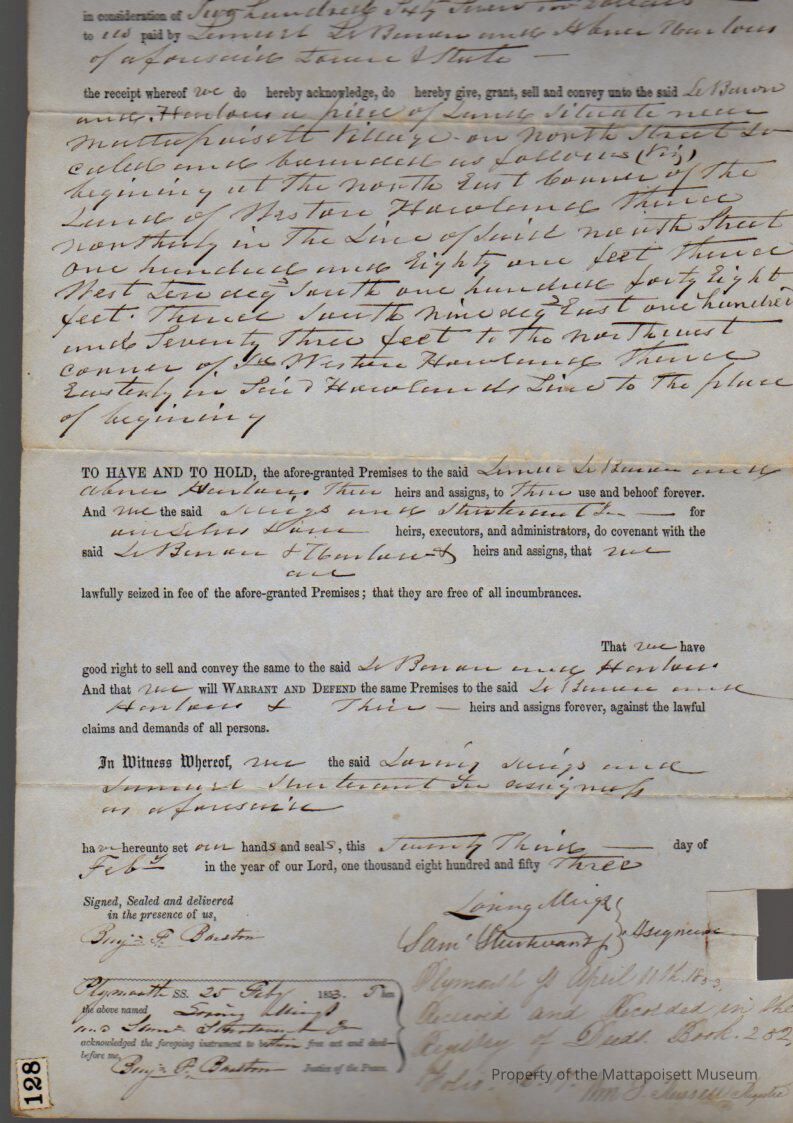 in consideration of Two hundred Sixty Seven Dollars
to us paid by Lemuel LeBaron and Abner Harlow
of aforesaid Town & State —
the receipt whereof we do hereby acknowledge, do hereby give, grant, sell and convey unto the said LeBaron
and Harlow a piece of Land Situate near
Mattapoisett Village on North Street So
caled and bounded as follows (Viz)
begining at the north East Corner of the
Land of Weston Howland Thence
northerly in the Line of Said north Street
one hundred and Eighty one feet Thence
West Ten degs South one hundred forty Eight
feet. Thence South nine degs East one hundred
and Seventy Three feet to the northwest
corner of Sd Weston Howland Thence
Easterly in Said Howlands Line to The place
of begining
TO HAVE AND TO HOLD, the afore-granted Premises to the said Lemuel LeBaron and
Abner Harlow Their heirs and assigns, to Their use and behoof forever.
And we the said Meigs and Sturtevant Jr — for
ourselves & our heirs, executors, and administrators, do covenant with the
said LeBaron & Harlow & heirs and assigns, that we
are
lawfully seized in fee of the afore-granted Premises; that they are free of all incumbrances.
That we have
good right to sell and convey the same to the said LeBaron and Harlow
And that we will WARRANT AND DEFEND the same Premises to the said LeBaron and
Harlow & Their — heirs and assigns forever, against the lawful
claims and demands of all persons.
In Witness Whereof, we the said Loring Meigs and
Samuel Sturtevant Jr assignees
as aforesaid
have hereunto set our hands and seals, this Twenty Third — day of
Feby in the year of our Lord, one thousand eight hundred and fifty Three
Signed, Sealed and delivered
in the presence of us,
Benj. F. Barstow
Loring Meigs
Saml Sturtevant Jr } Assignees
Plymouth SS. 25 Feby 1853. Then
the above named Loring Meigs
and Saml Sturtevant Jr
acknowledged the foregoing instrument to be their free act and deed—
before me,
Benj. F. Barstow Justice of the Peace.
Plymouth ss April 11th. 1853.
Received and Recorded in the
Registry of Deeds. Book. 252
Folio
Wm S. Russell Register
128
Property of the Mattapoisett Museum